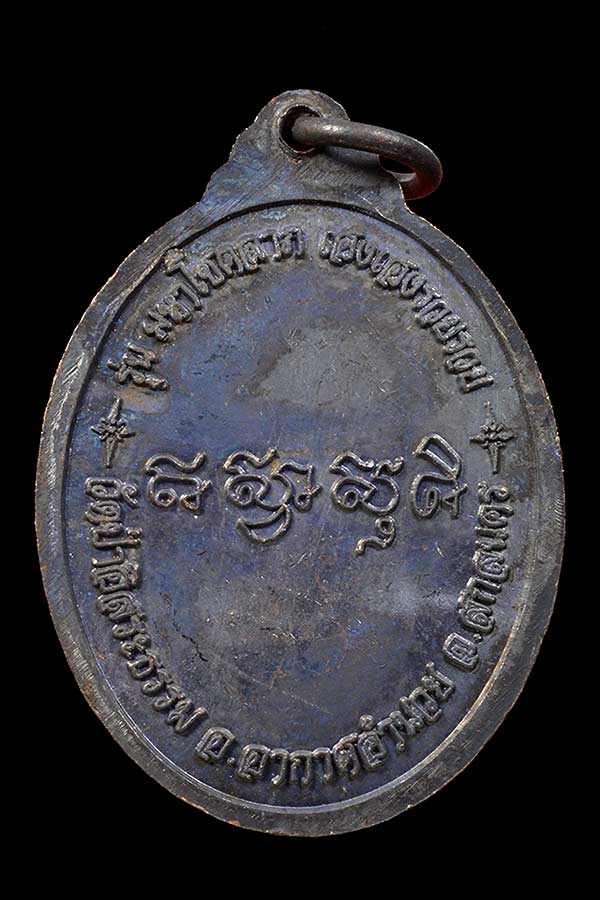 รุ่น มหาโชคลาภ เฮงเฮงรวยรวย
วัดป่าอิสระธรรม อ.อากาศอำนวย จ.สกลนคร